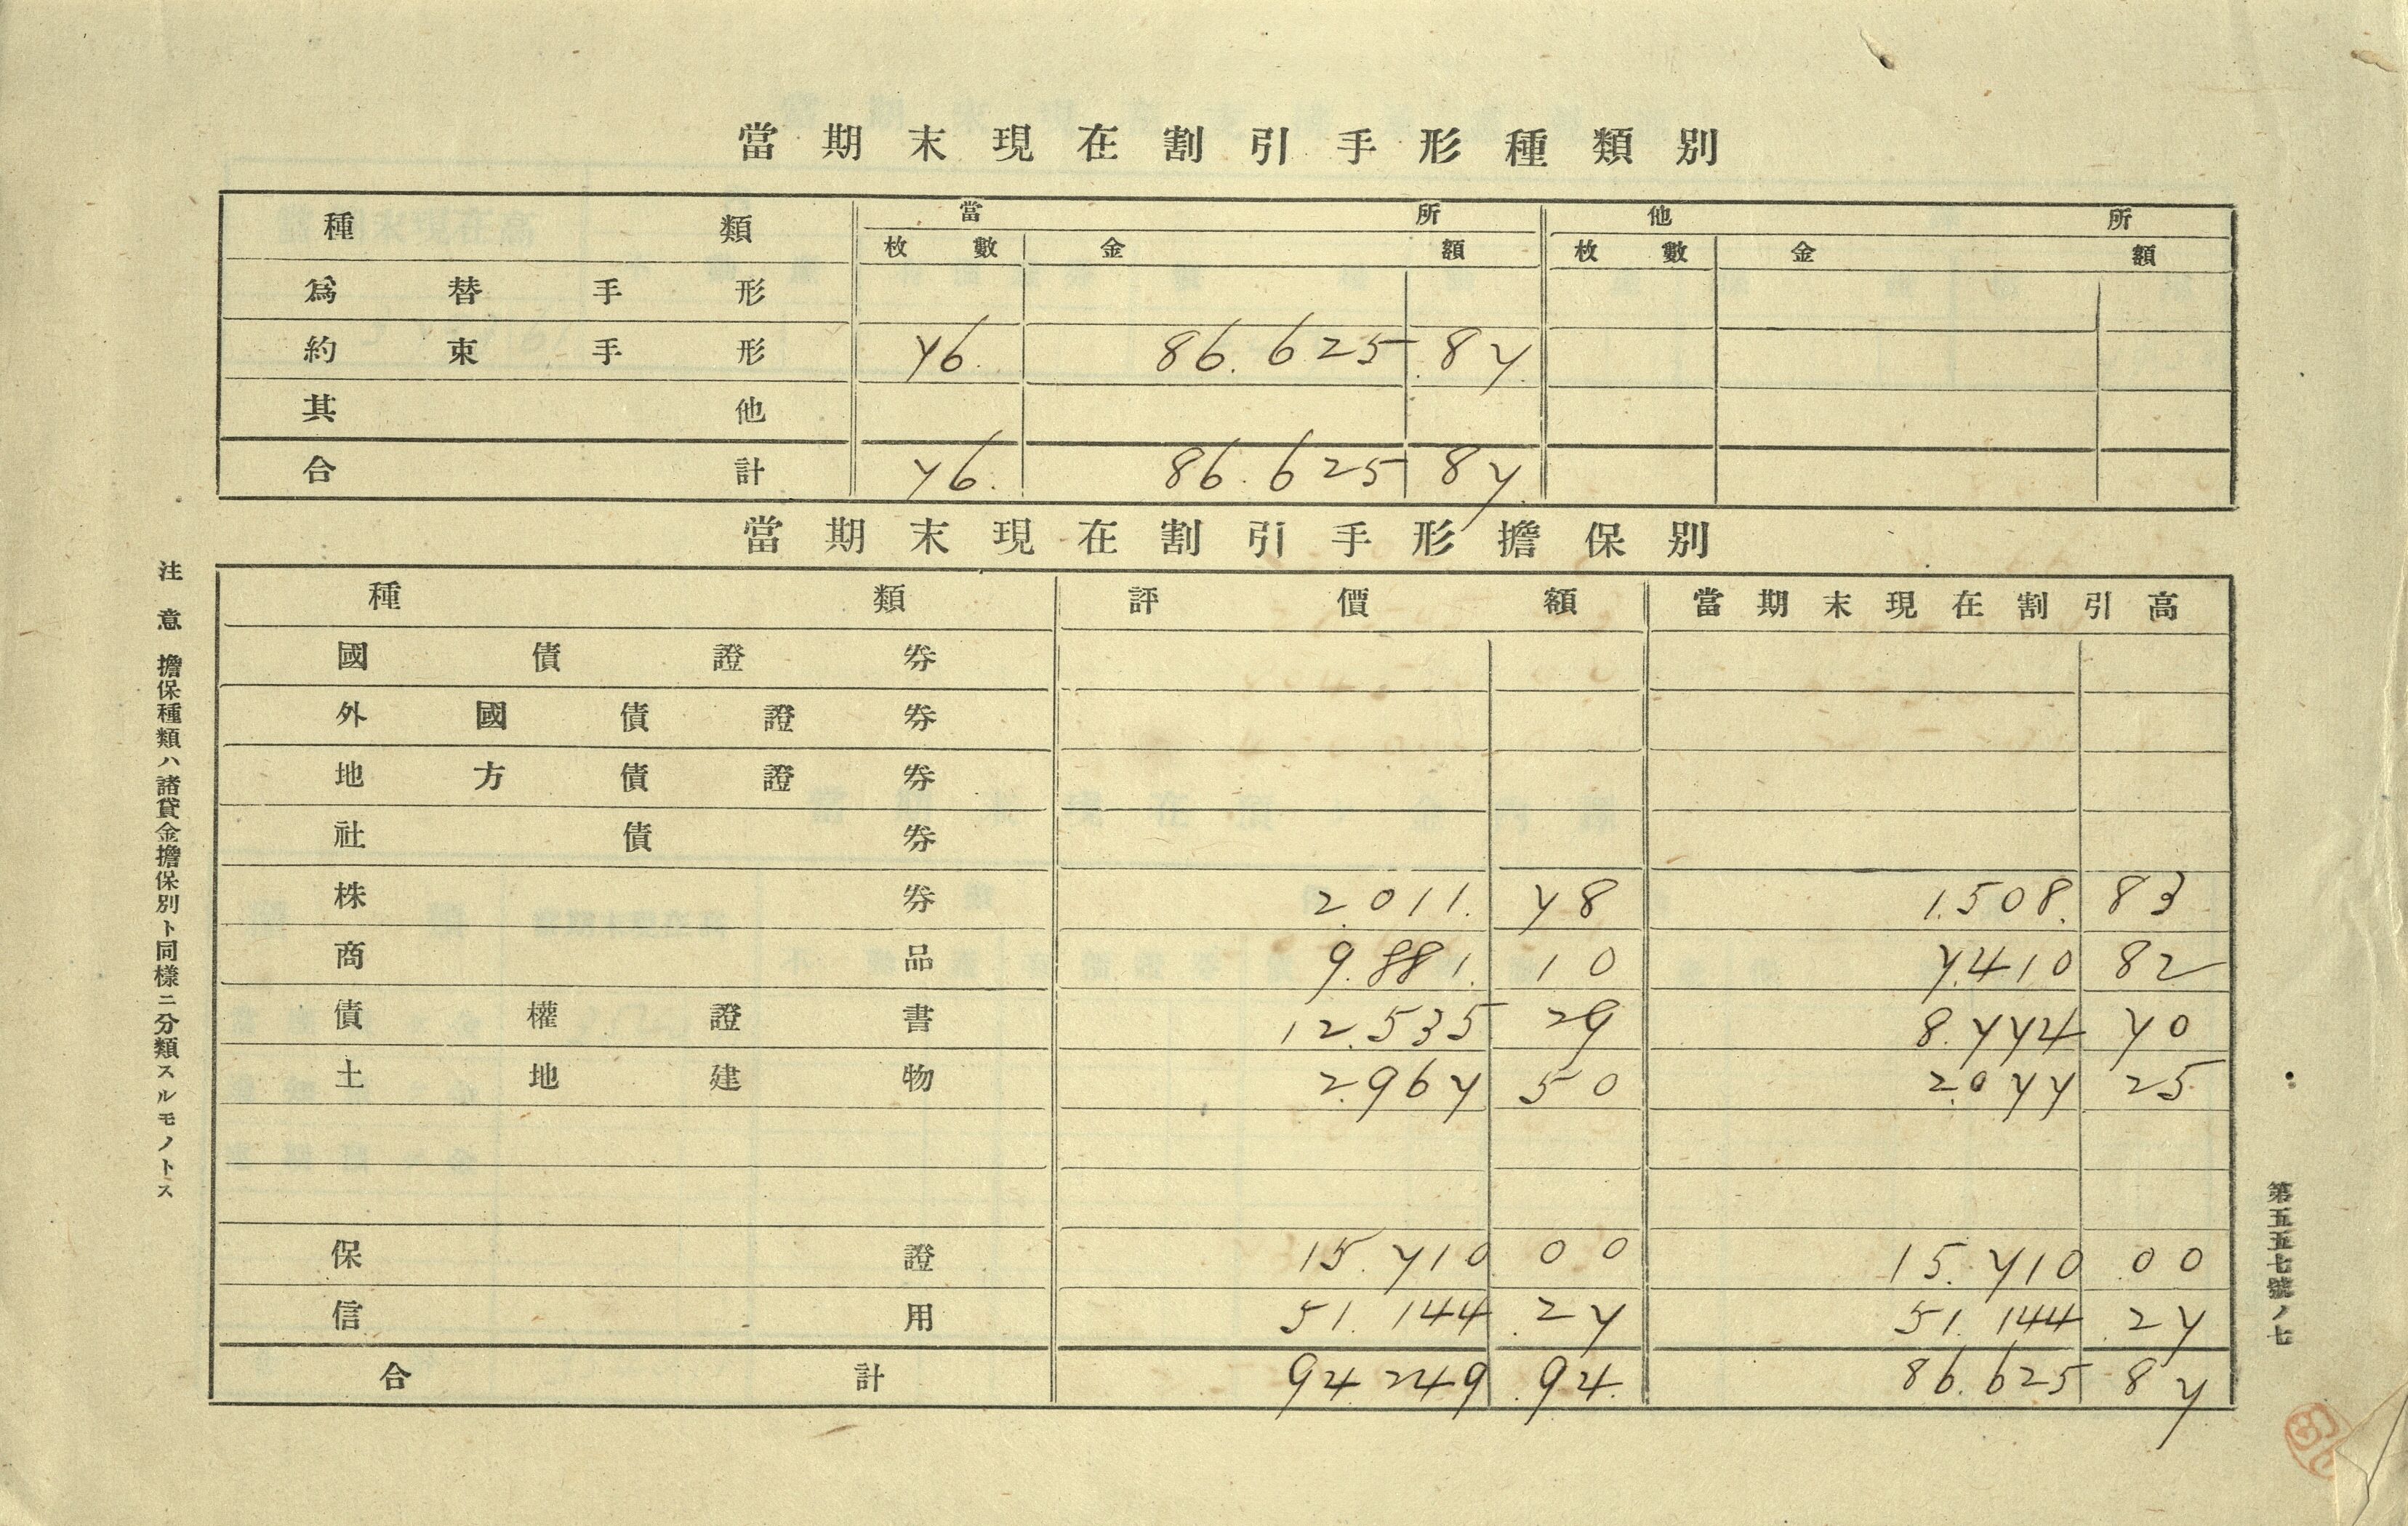 當期末現在割引手形種類別
種類 當所 他所
枚數 金額 枚數 金額
爲替手形
約束手形 76. 86.625 87
其他
合計 76. 86.625 87
當期末現在割引手形擔保別
種類 評價額 當期末現在割引高
國債證券
外國債證券
地方債證券
社債券
株券 2.011. 78 1.508. 83
商品 9.881. 10 7.410 82
債權證書 12.535 29 8.774 70
土地建物 2.967 50 2.077 25
保證 15.710 00 15.710 00
信用 51.144 27 51.144 27
合計 94.249 94 86.625 87
注意 擔保種類ハ諸貸金擔保別ト同樣ニ分類スルモノトス
第五五七號ノ七